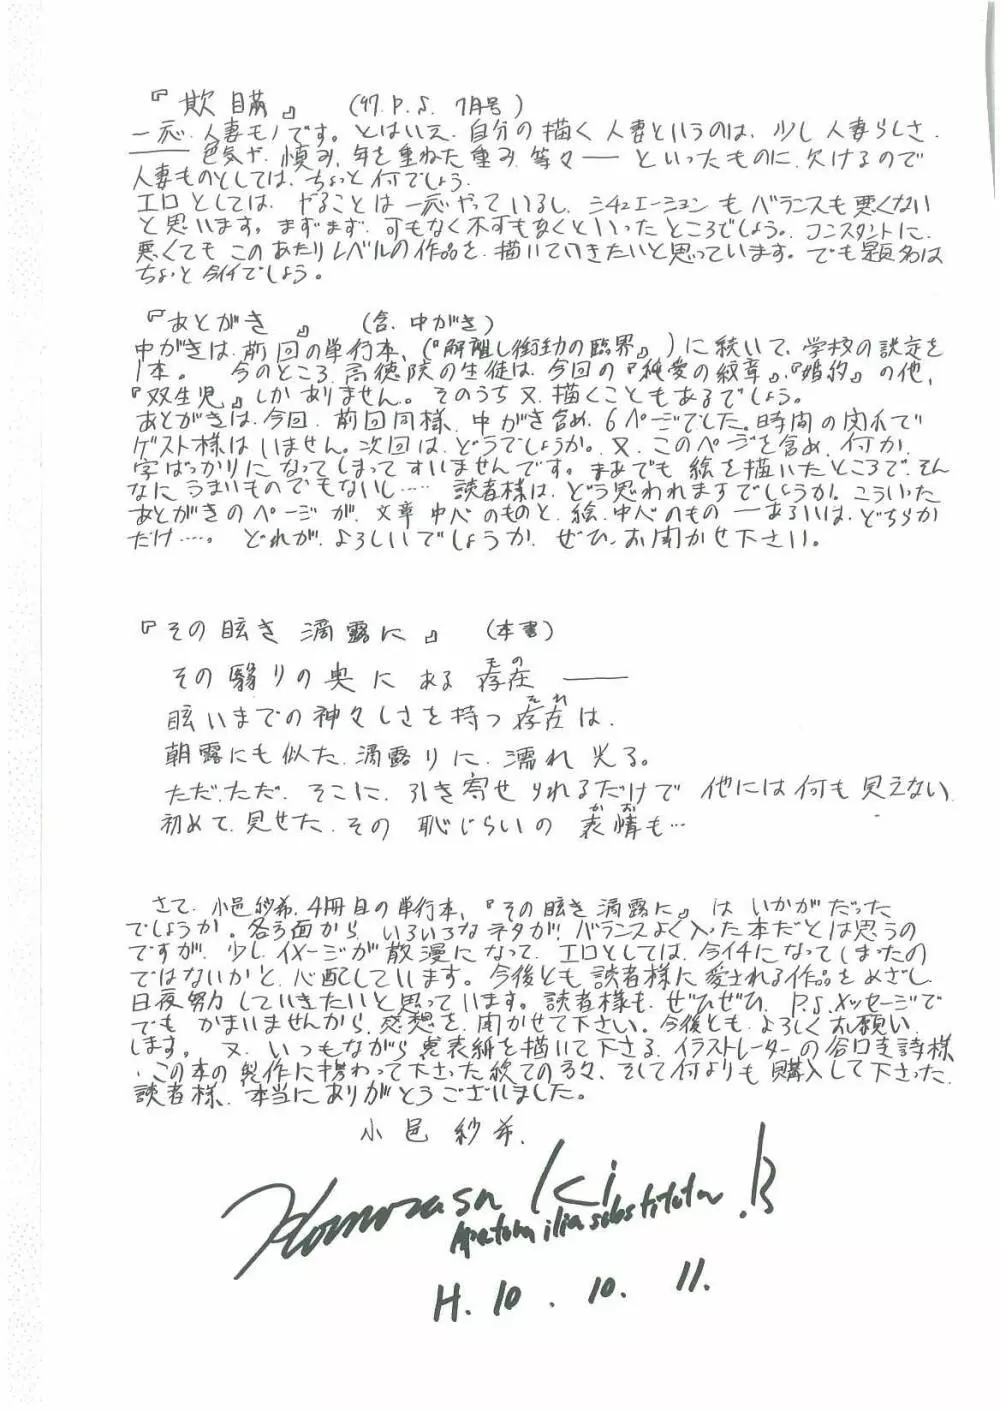 『欺瞞』 ('97.P.S.7月号)
一応、人妻モノです。とはいえ、自分の描く人妻というのは、少し人妻らしさ、
――色気や、慎み、年を重ねた重み、等々――といったものに、欠けるので
人妻ものとしては、ちょっと何でしょう。
エロとしては、やることは一応やっているし、シチュエーションもバランスも悪くない
と思います。まずまず、可もなく不可もなくといったところでしょう。コンスタントに、
悪くてもこのあたりレベルの作品を、描いていきたいと思っています。でも題名は
ちょっと今イチでしょう。
『あとがき』 (含、中がき)
中がきは、前回の単行本、(『解離し衝動の臨界』)に続いて、学校の設定を
1本。 今のところ、高徳院の生徒は、今回の『純愛の紋章』、『婚約』の他、
『双生児』しかありません。そのうち又、描くこともあるでしょう。
あとがきは、今回、前回同様、中がき含め、6ページでした。時間の関係で
ゲスト様はいません。次回は、どうでしょうか。又、このページを含め、何か、
字ばっかりになってしまってすいませんです。まあでも絵を描いたところで、そん
なにうまいものでもないし…… 読者様は、どう思われますでしょうか。こういった
あとがきのページが、文章中心のものと、絵、中心のもの――あるいは、どちらか
だけ……。 どれが、よろしいでしょうか、ぜひ、お聞かせ下さい。
『その眩き滴露に』 (本書)
その翳りの奥にある存在(もの)――
眩いまでの神々しさを持つ存在(それ)は、
朝露にも似た、滴露りに、濡れ光る。
ただ、ただ、そこに、引き寄せられるだけで他には何も見えない、
初めて、見せた、その恥じらいの表情(かお)も…
さて、小邑紗希、4冊目の単行本、『その眩き滴露に』は、いかがだった
でしょうか。各方面から、いろいろなネタが、バランスよく入った本だとは思うの
ですが、少しイメージが散漫になって、エロとしては、今イチになってしまったの
ではないかと、心配しています。今後とも読者様に愛される作品をめざし、
日夜努力していきたいと思っています。読者様も、ぜひぜひ、P.S.メッセージで
でもかまいませんから、感想を、聞かせて下さい。今後とも、よろしくお願い、
します。 又、いつもながら裏表紙を描いて下さる、イラストレーターの谷口 詩様
、この本の製作に携わって下さった総ての方々、そして何よりも購入して下さった、
読者様、本当にありがとうございました。
小邑紗希.
Komurasa Ki .B
H.10.10.11.